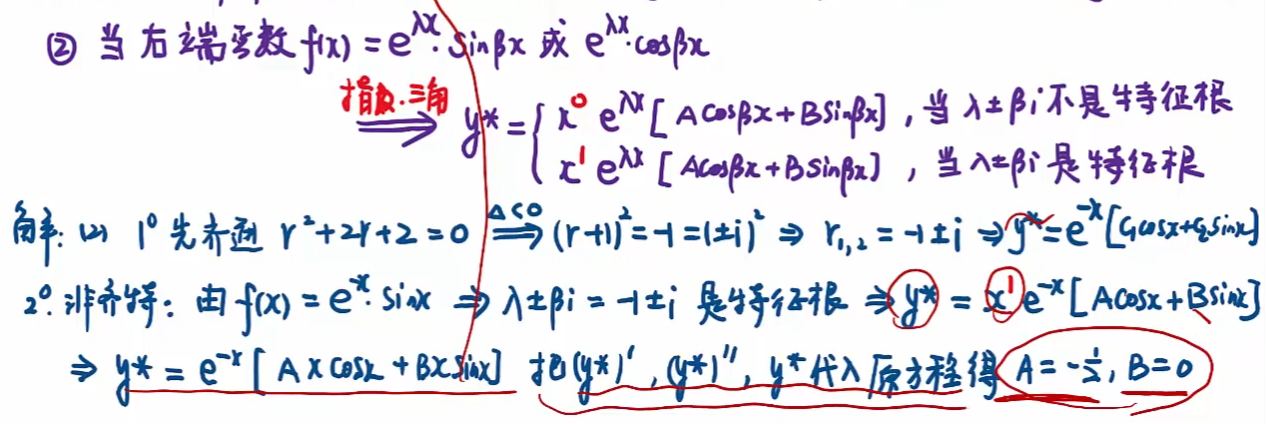 ② 当右端函数 f(x) = e^{λx}·sinβx 或 e^{λx}·cosβx
指数·三角
⇒ y* = { x⁰ e^{λx} [Acosβx + Bsinβx], 当 λ±βi 不是特征根
x¹ e^{λx} [Acosβx + Bsinβx], 当 λ±βi 是特征根
解: (2) 1° 先齐通 r² + 2r + 2 = 0 ⇒ (Δ<0) (r+1)² = -1 = (±i)² ⇒ r₁,₂ = -1±i ⇒ y = e^{-x} [C₁cosx + C₂sinx]
2°. 非齐特: 由 f(x) = e^{-x}·sinx ⇒ λ±βi = -1±i 是特征根 ⇒ y* = x¹ e^{-x} [Acosx + Bsinx]
⇒ y* = e^{-x} [Axcosx + Bxsinx] 把(y*)′, (y*)″, y*代入原方程得 A = -½, B = 0